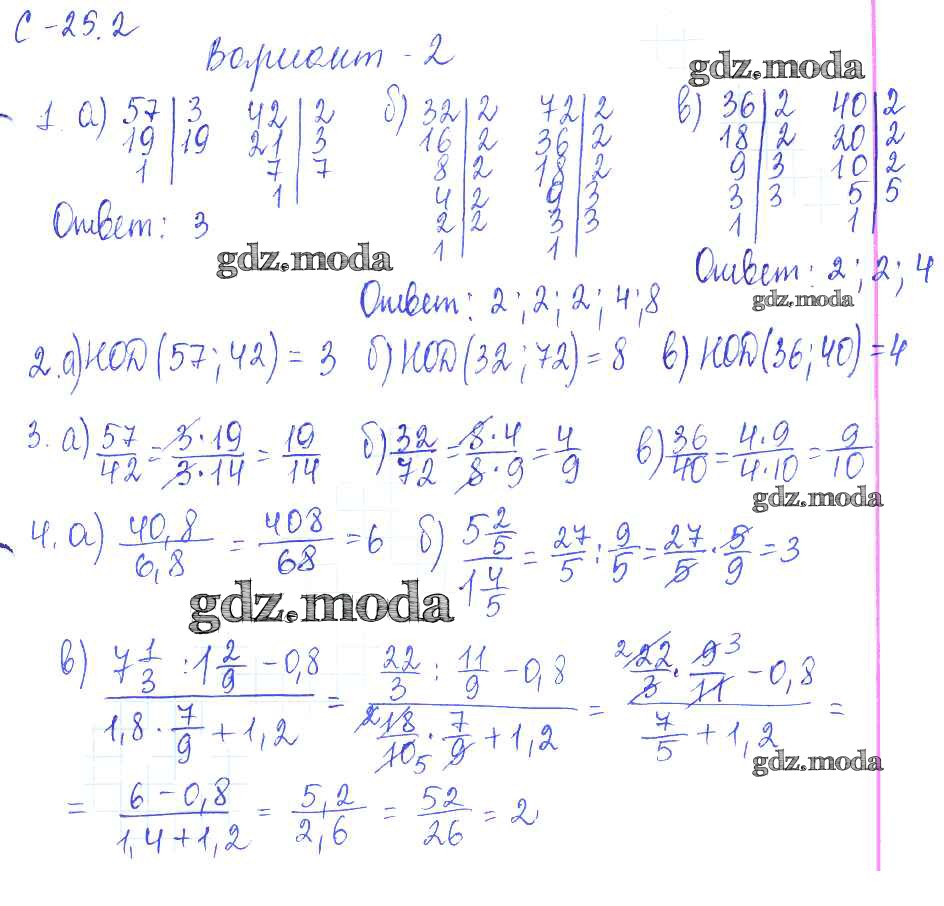 С-25.2
Вариант - 2
gdz.moda
1. а) 57 | 3   42 | 2   б) 32 | 2   72 | 2   в) 36 | 2   40 | 2
19 | 19   21 | 3   16 | 2   36 | 2   18 | 2   20 | 2
1 |   7 | 7   8 | 2   18 | 2   9 | 3   10 | 2
1 |   4 | 2   9 | 3   3 | 3   5 | 5
2 | 2   3 | 3   1 |   1 |
1 |   1 |
Ответ: 3
gdz.moda
Ответ: 2; 2; 4
gdz.moda
Ответ: 2; 2; 2; 4; 8
2. а) НОД (57; 42) = 3 б) НОД (32; 72) = 8 в) НОД (36; 40) = 4
3. а) 57/42 = 3·19/3·14 = 19/14 б) 32/72 = 8·4/8·9 = 4/9 в) 36/40 = 4·9/4·10 = 9/10
gdz.moda
4. а) 40,8/6,8 = 408/68 = 6 б) 5 2/5 / 1 4/5 = 27/5 : 9/5 = 27/5 · 5/9 = 3
gdz.moda
в) (7 1/3 : 1 2/9 - 0,8)/(1,8 · 7/9 + 1,2) = (22/3 : 11/9 - 0,8)/(2 18/10 5 · 7/9 + 1,2) = (2 22/3 · 9 3/11 - 0,8)/(7/5 + 1,2) =
gdz.moda
= (6 - 0,8)/(1,4 + 1,2) = 5,2/2,6 = 52/26 = 2